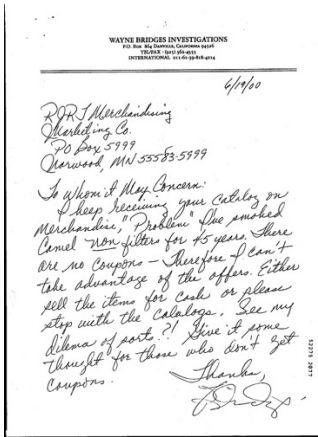 WAYNE BRIDGES INVESTIGATIONS
P.O. BOX 864 DANVILLE, CALIFORNIA 94526
TEL/FAX - (925)
INTERNATIONAL
6/19/00
RJRT Merchandising
Marketing Co.
PO Box 5999
Norwood, MN 55583-5999
To Whom it May Concern:
I keep receiving your catalog on
Merchandise, "Problem" I've smoked
Camel non filters for 45 years. There
are no coupons - Therefore I can't
take advantage of the offers. Either
sell the items for cash or please
stop with the catalogs. See my
dilema of sorts?! Give it some
thought for those who don't get
coupons.
Thanks,
52275 2077